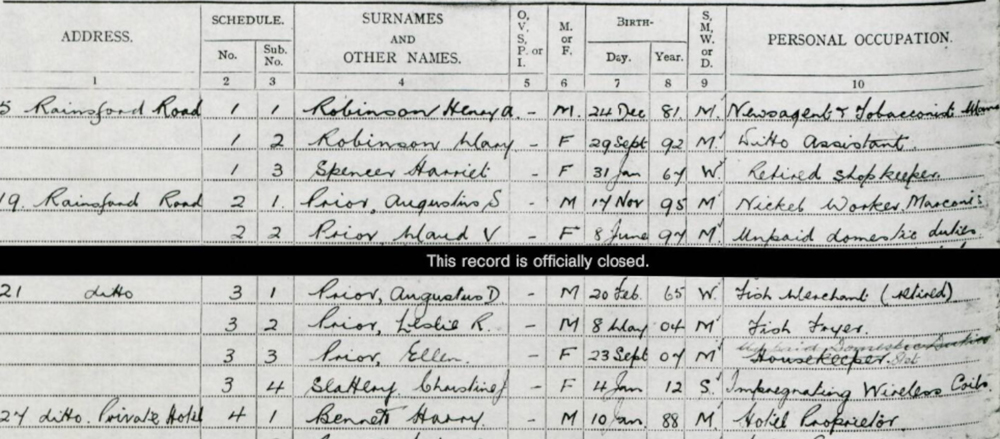 ADDRESS. SCHEDULE. SURNAMES AND OTHER NAMES. O, V, S, P. or I. M. or F. BIRTH- S, M, W, or D. PERSONAL OCCUPATION.
No. Sub. No. Day. Year.
1 2 3 4 5 6 7 8 9 10
5 Rainsford Road 1 1 Robinson Henry A. - M. 24 Dec 81 M. Newsagent & Tobacconist
1 2 Robinson Mary - F 29 Sept 92 M. Ditto Assistant.
1 3 Spencer Harriet - F 31 Jan 67 W. Retired Shopkeeper.
19. Rainsford Road 2 1. Prior, Augustus S - M 17 Nov 95 M Nickel Worker, Marconi's
2 2 Prior Maud V - F 8 June 97 M. Unpaid domestic duties
This record is officially closed.
21 ditto 3 1 Prior, Augustus D - M 20 Feb. 65 W. Fish Merchant (retired)
3 2 Prior, Leslie R. - M 8 May 04 M Fish Fryer.
3 3 Prior, Ellen. - F 23 Sept 07 M Housekeeper.
3 4 Slattery Christine J - F 4 Jan 12 S. Impregnating Wireless Coils.
27 ditto. Private Hotel 4 1 Bennett Harry. M 10 Jan 88 M. Hotel Proprietor.